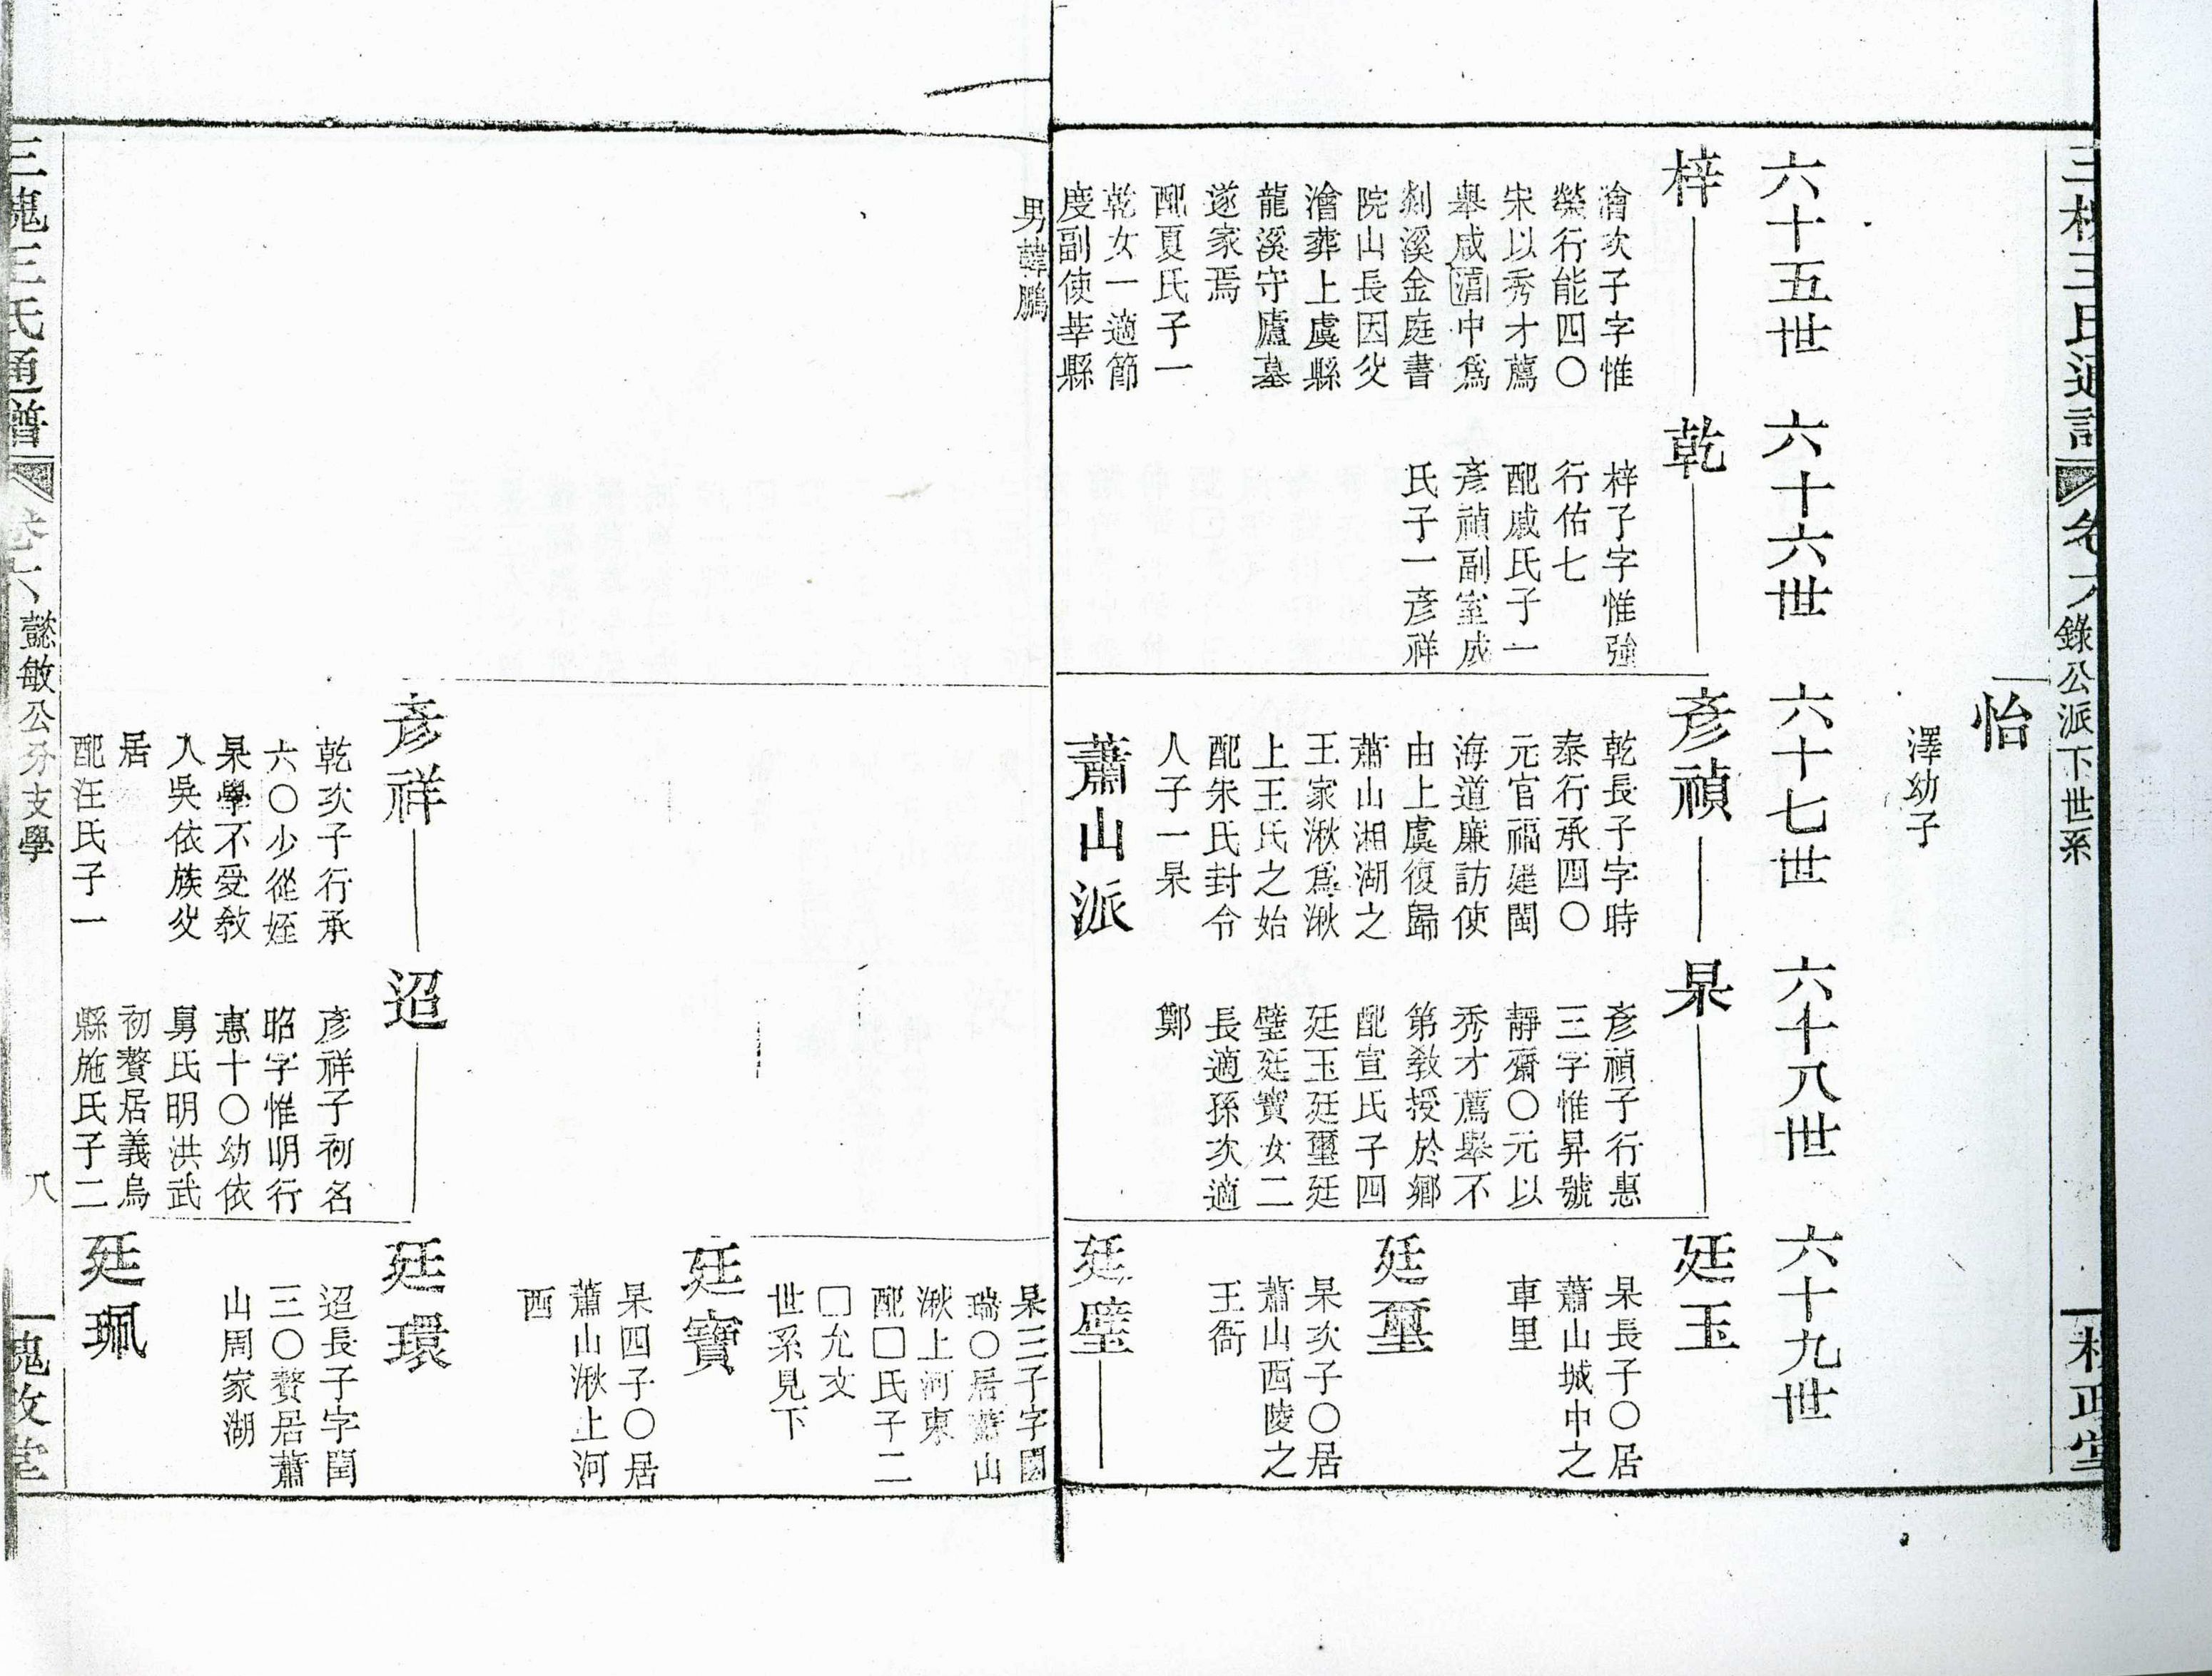 三槐王氏通譜
錄公派下世系
怡
澤幼子
六十五世
六十六世
六十七世
六十八世
六十九世
梓
澮次子字惟
榮行能四〇
宋以秀才薦
舉咸淳中爲
剡溪金庭書
院山長因父
澮葬上虞縣
龍溪守廬墓
遂家焉
配夏氏子一
乾女一適節
度副使莘縣
男韓鵬
乾
梓子字惟強
行佑七
配戚氏子一
彥禎副室成
氏子一彥祥
彥禎
乾長子字時
泰行承四〇
元官福建閩
海道廉訪使
由上虞復歸
蕭山湘湖之
王家湫爲湫
上王氏之始
配朱氏封令
人子一杲
蕭山派
杲
彥禎子行惠
三字惟昇號
靜齋〇元以
秀才薦舉不
第教授於鄉
配宣氏子四
廷玉廷璽廷
璧廷寶女二
長適孫次適
鄭
廷玉
杲長子〇居
蕭山城中之
車里
廷璽
杲次子〇居
蕭山西陵之
王衙
廷璧
杲三子字國
瑞〇居蕭山
湫上河東
配□氏子二
□允文
世系見下
廷寶
杲四子〇居
蕭山湫上河
西
彥祥
乾次子行承
六〇少從姪
杲學不受教
入吳依族父
居
配汪氏子一
迢
彥祥子初名
昭字惟明行
惠十〇幼依
舅氏明洪武
初贅居義烏
縣施氏子二
廷環
迢長子字閏
三〇贅居蕭
山周家湖
廷珮
三槐王氏通譜
卷六
懿敏公分支學
八
槐政堂